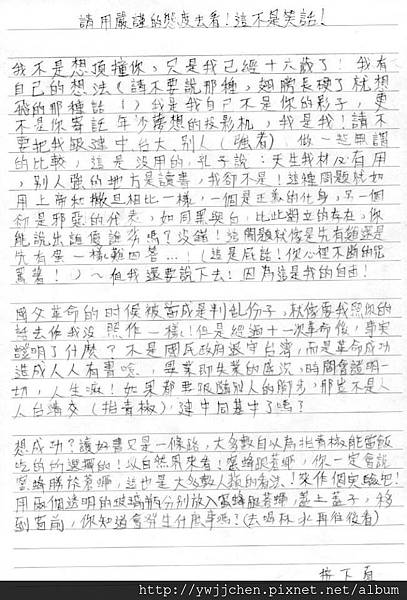 請用嚴謹的態度去看!這不是笑話!
我不是想頂撞你,只是我已經十六歲了!我有
自己的想法(請不要說那種,翅膀長硬了就想
飛的那種話!)我是我自己不是你的影子,更
不是你寄託年少夢想的投影机,我是我!請不
要把我跟建中台大別人(強者)做一起無謂
的比較,這是沒用的,孔子說:天生我材必有用
,別人強的地方是讀書,我卻不是!這種問題就如
用上帝和撒旦相比一樣,一個是正義的化身,另一個
卻是邪惡的代表,如同黑與白,比此獨立的存在,你
能說出誰優誰劣嗎?沒錯!這問題就像是先有雞還是
先有蛋一樣難回答...!(這是屁話!你心裡不斷的咒
罵著!)~但我還要說下去!因為這是我的自由!
國父革命的时候被當成是判乱份子,就像要我照你的
話去做我沒照作一樣!但是經過十一次革命後,事实
證明了什麼?不是國民政府退守台灣,而是革命成功
造成人人有書唸,畢業即失業的盛況,時間會證明一
切,人生嘛!如果都要跟隨別人的腳步,那豈不是人
人台清交(指青椒),建中同基牛了嗎?
想成功?讀好書又是一條路,大多數自以為指青椒能當飯
吃的的選擇的!以自然界來看!蜜蜂跟蒼蠅,你一定會說
蜜蜂勝於蒼蠅,這也是大多數人類的看法!來作個实驗吧!
用兩個透明的玻璃瓶分別放入蜜蜂跟蒼蠅,蓋上蓋子,移
到窗前,你知道會發生什麼事嗎?(去喝杯水再往後看)
按下頁
http://ywjjchen.pixnet.net/album